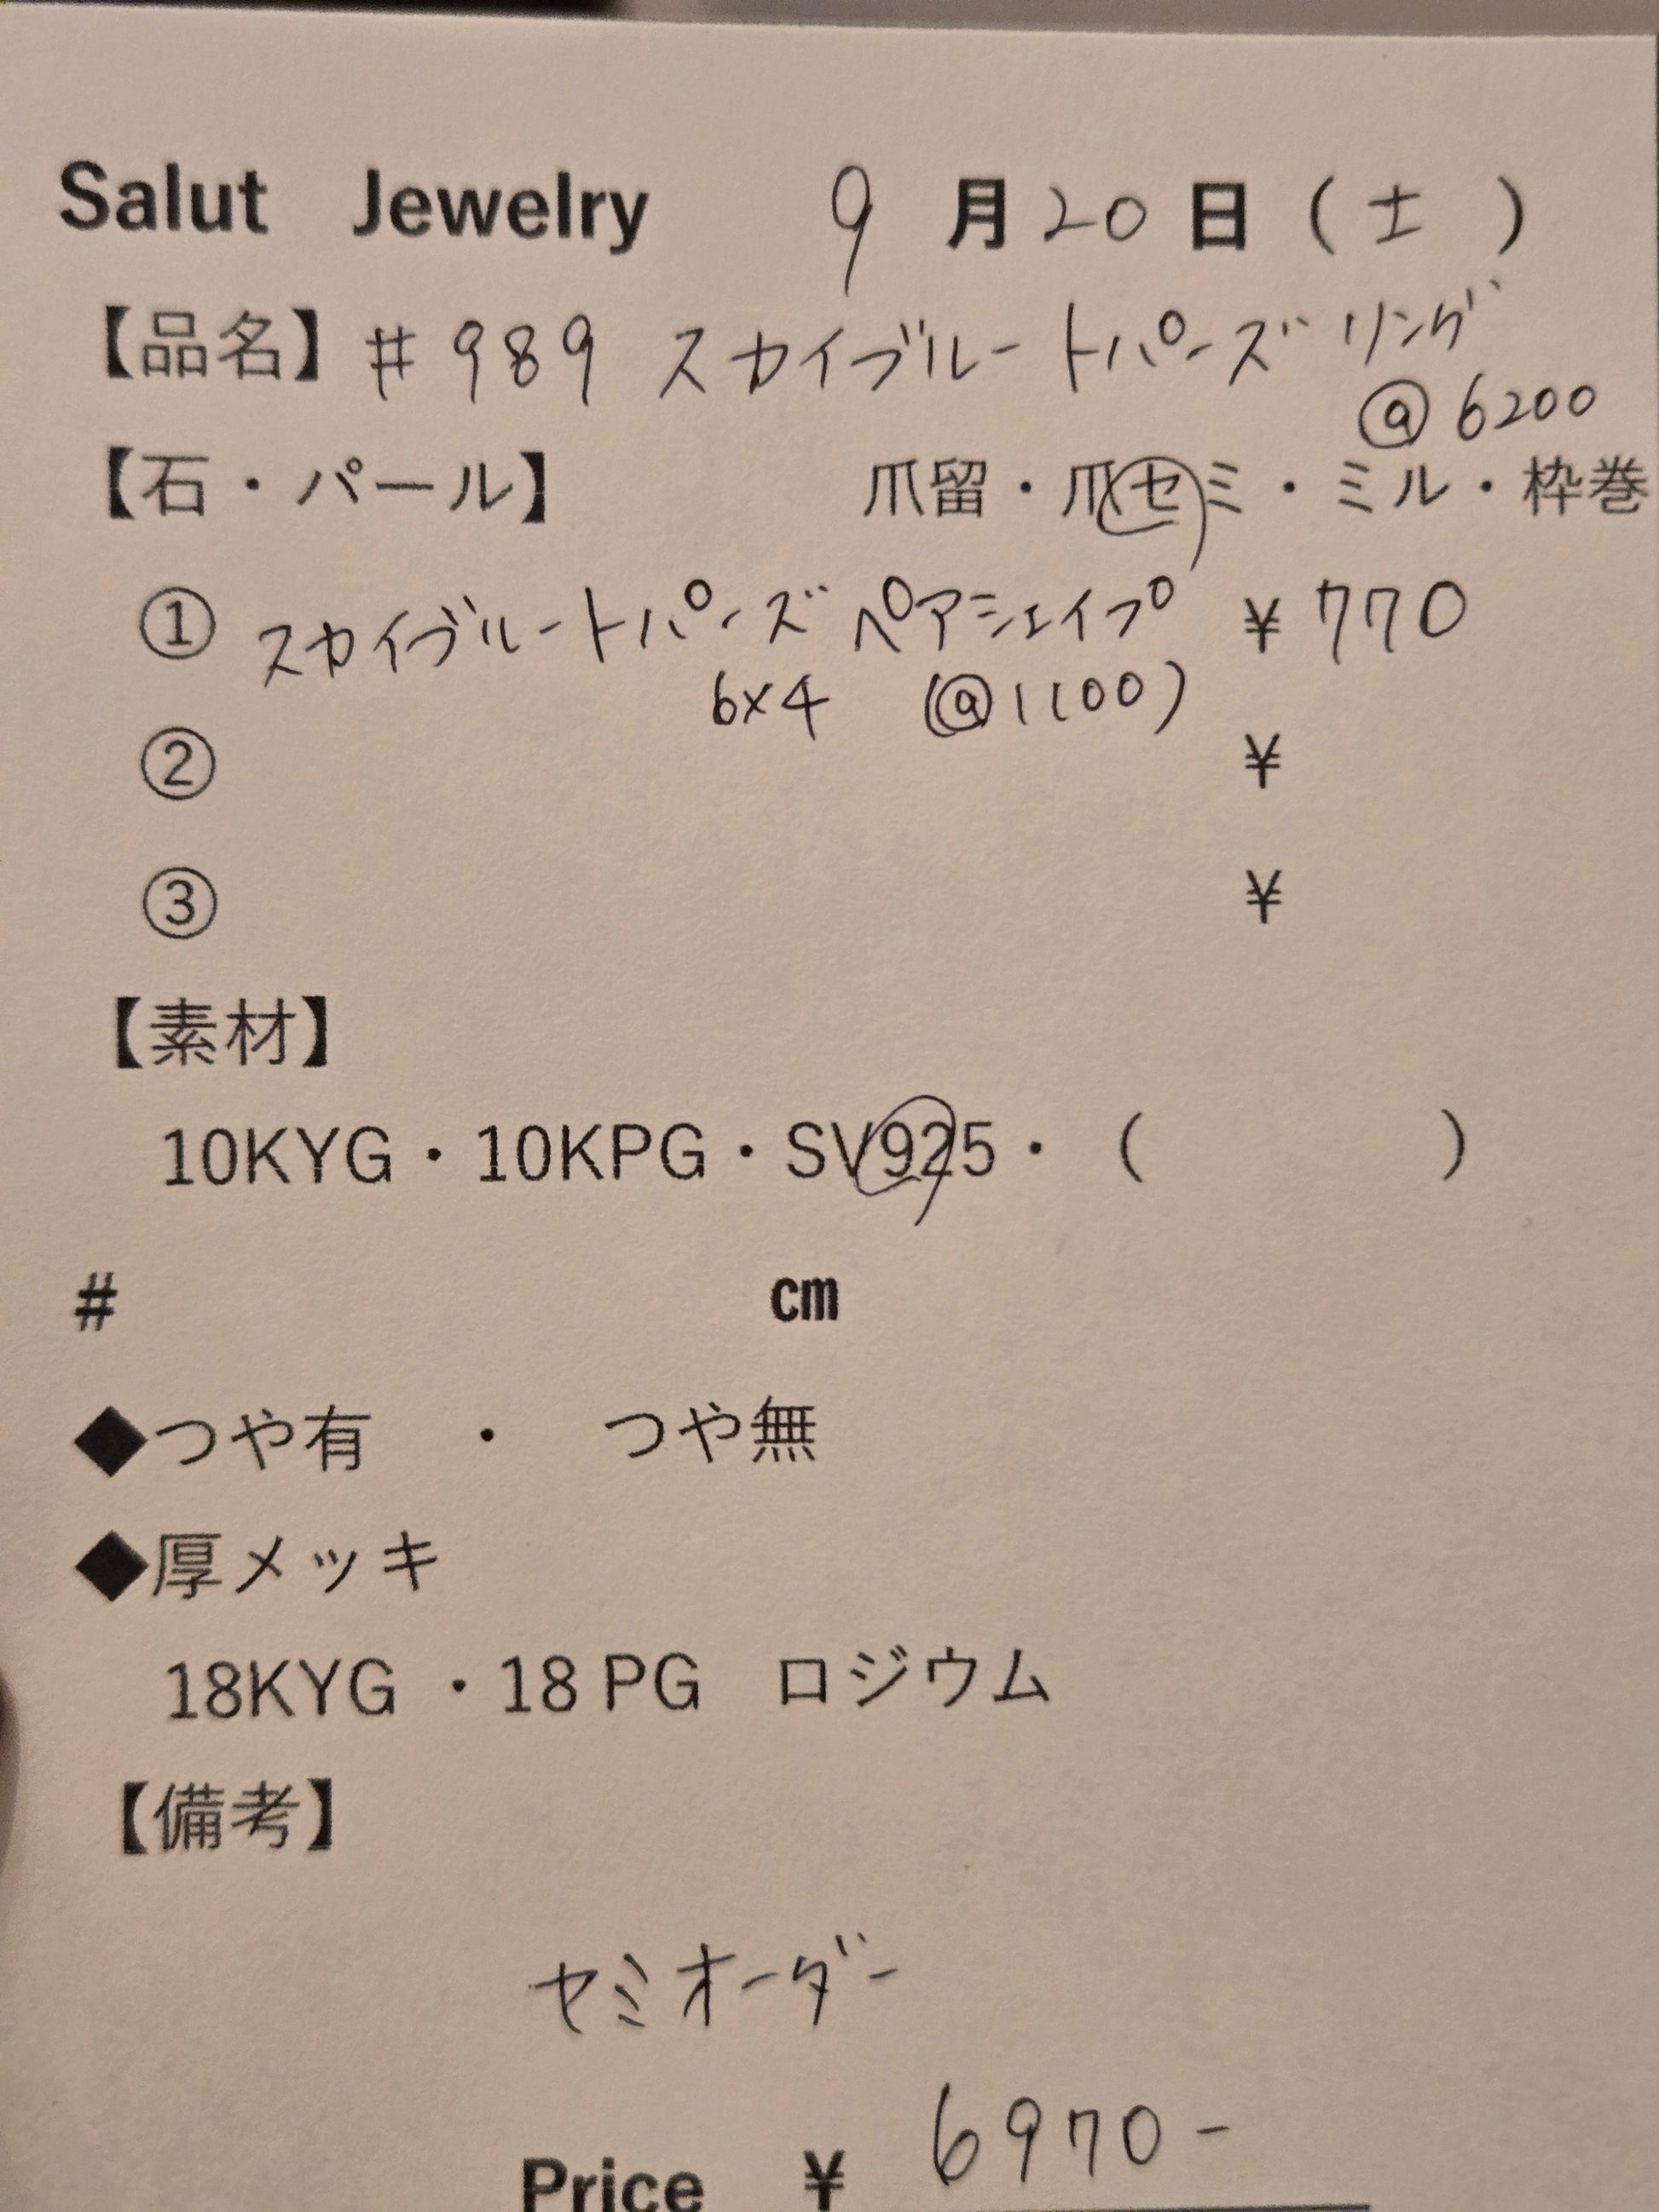 Salut Jewelry 9月20日(土)
【品名】#989 スカイブルートパーズリング
@6200
【石・パール】 爪留・爪セミ・ミル・枠巻
① スカイブルートパーズ ペアシェイプ ¥770
6×4 (@1100)
② ¥
③ ¥
【素材】
10KYG・10KPG・SV925・( )
# cm
◆つや有 ・ つや無
◆厚メッキ
18KYG ・18 PG ロジウム
【備考】
セミオーダー
Price ¥ 6970-